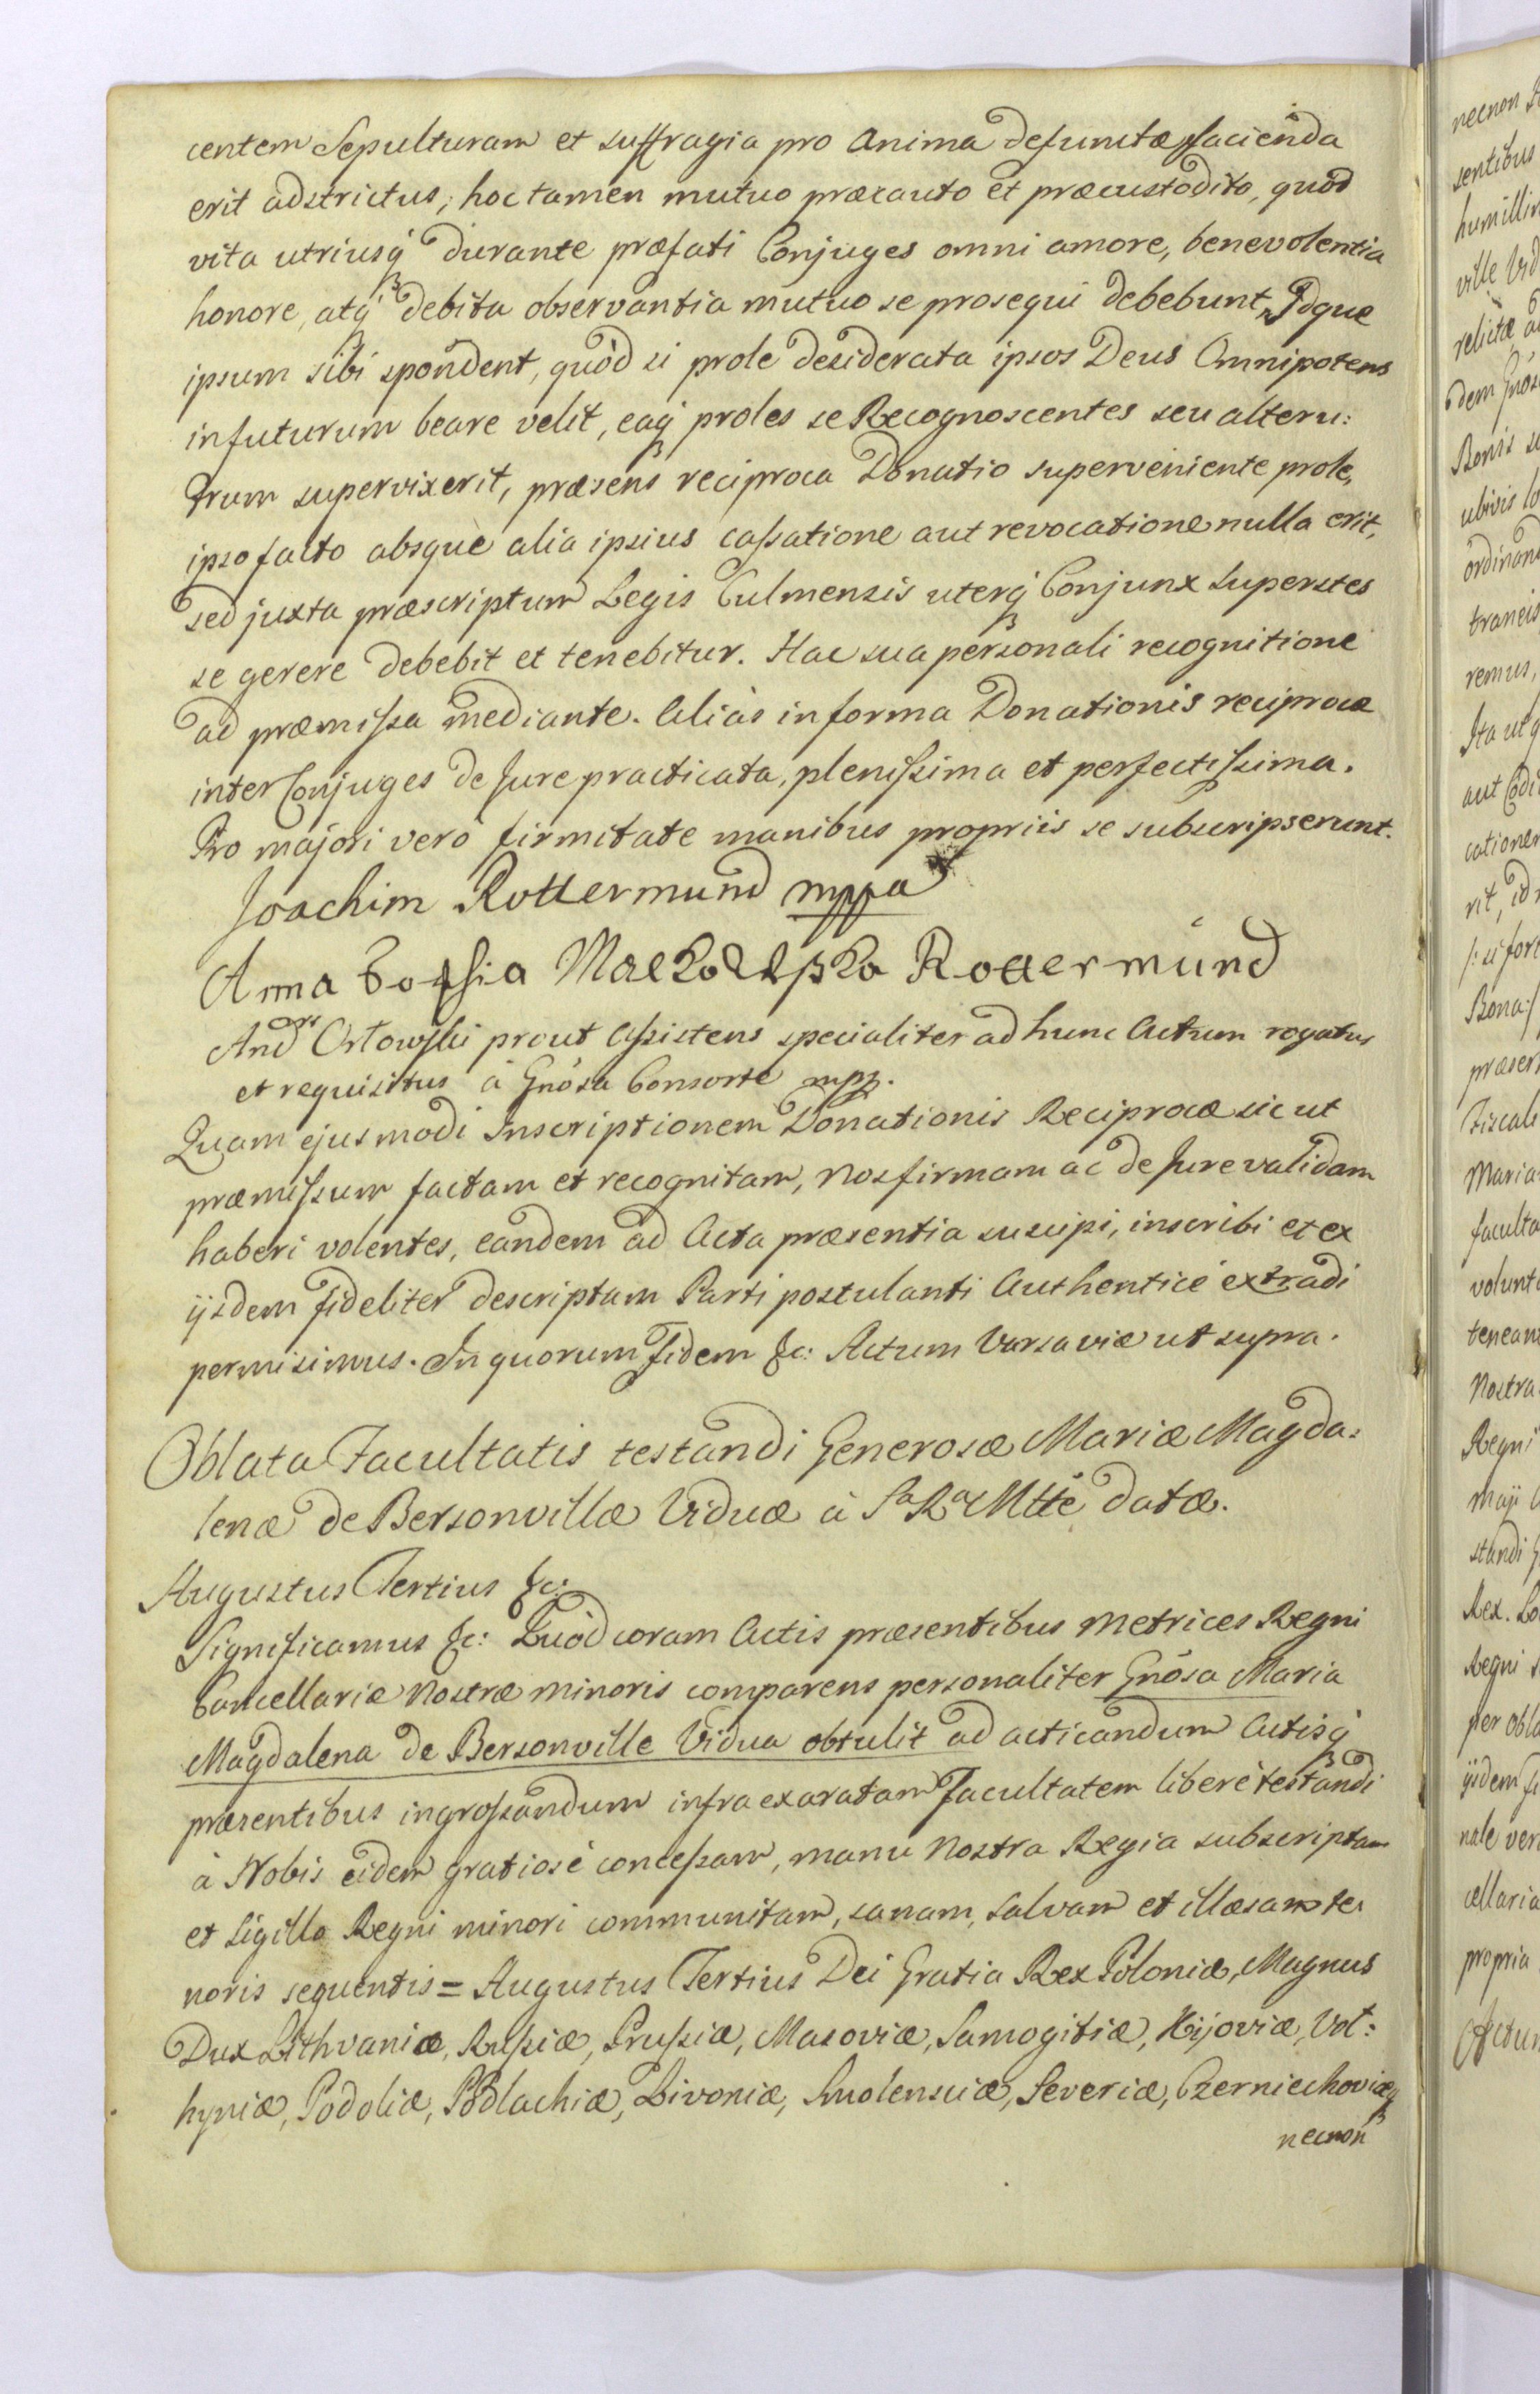 centem Sepulturam et suffragia pro Anima defunctæ facienda
erit adstrictus, hoc tamen mutuo præcauto et præcustodito, quod
vita utriusq durante præfati Conjuges omni amore, benevolentia
honore, atq debita observantia mutuo se prosequi debebunt, Idque
ipsum sibi spondent, quòd si prole desiderata ipsos Deus Omnipotens
in futurum beare velit, eaq proles se Recognoscentes seu alteru:
trum supervixerit, præsens reciproca Donatio superveniente prole,
ipso facto absque alia ipsius caſsatione aut revocatione nulla erit,
sed juxta præscriptum Legis Culmensis uterq Conjunx Superstes
se gerere debebit et tenebitur. Hac sua personali recognitione
ad præmiſsa mediante. Aliàs in forma Donationis reciprocæ
inter Conjuges de Jure practicata, pleniſsima et perfectiſsima.
Pro majori verò firmitate manibus propriis se subscripserunt.
Joachim Rottermund mppa
Anna Rottermund
And Orłowſki prout Aſsistens specialiter ad hunc Actum rogatus
et requisitus à Gnôsa Consorte mpp.
Quam ejusmodi Inscriptionem Donationis Reciprocæ sic ut
præmiſsum factam et recognitam, Nos firmam ac de Jure validam
haberi volentes, eandem ad Acta præsentia suscipi, inscribi et ex
ijsdem fideliter descriptam Parti postulanti Authenticè extradi
permisimus. In quorum Fidem &c: Actum Varsaviæ ut supra.
Oblata Facultatis testandi Generosæ Mariæ Magda:
lenæ de Bersonvillæ Viduæ à Sa Ra Mtte datæ.
Augustus Tertius &c:
Significamus &c: Quòd coram Actis præsentibus Metrices Regni
Cancellariæ Nostræ minoris comparens personaliter Gnôsa Maria
Magdalena de Bersonville Vidua obtulit ad acticandum Actisq
præsentibus ingroſsandum infra exaratam Facultatem liberè testandi
à Nobis eidem gratiosè conceſsam, manu Nostra Regia subscriptam
et Sigillo Regni minori communitam, sanam, salvam et illæsam te:
noris sequentis = Augustus Tertius Dei Gratia Rex Poloniæ, Magnus
Dux Lithvaniæ, Ruſsiæ, Pruſsiæ, Masoviæ, Samogitiæ, Kijoviæ, Vol:
hyniæ, Podoliæ, Podlachiæ, Livoniæ, Smolensciæ, Severiæ, Czerniechoviæq
necnon